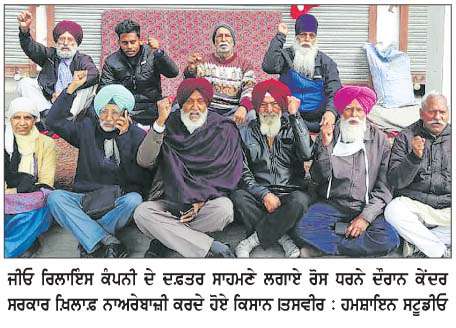 ਜੀਓ ਰਿਲਾਇੰਸ ਕੰਪਨੀ ਦੇ ਦਫ਼ਤਰ ਸਾਹਮਣੇ ਲਗਾਏ ਰੋਸ ਧਰਨੇ ਦੌਰਾਨ ਕੇਂਦਰ
ਸਰਕਾਰ ਖ਼ਿਲਾਫ਼ ਨਾਅਰੇਬਾਜ਼ੀ ਕਰਦੇ ਹੋਏ ਕਿਸਾਨ।ਤਸਵੀਰ : ਹਮਸ਼ਾਇਨ ਸਟੂਡੀਓ